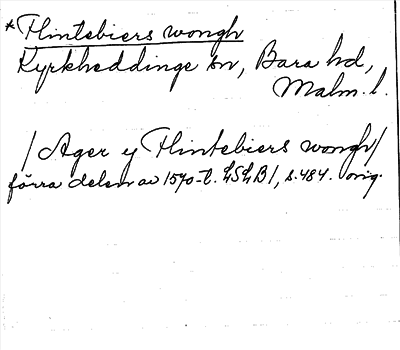 *Flintebiers wongh
Kyrkheddinge sn, Bara hd,
Malm. l.
/Ager y Flintebiers wongh/
förra delen av 1570-t. LSLB1, s. 484. orig.